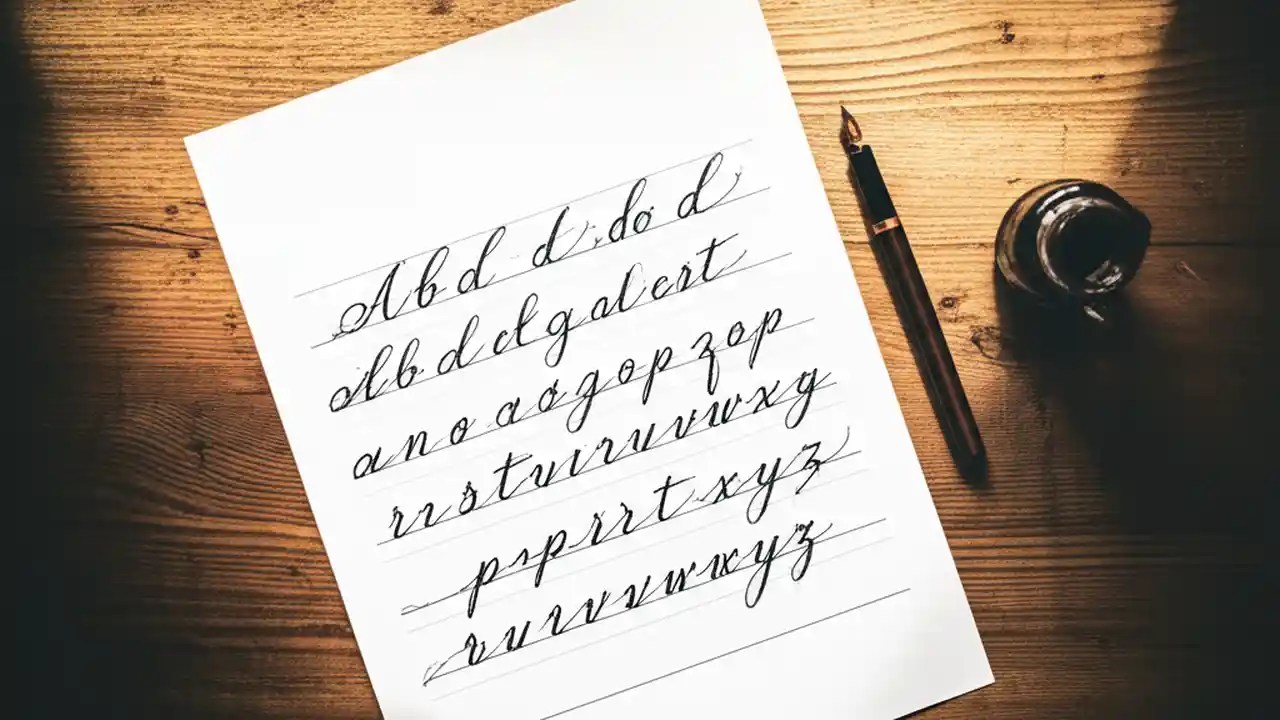 Abd d do d
Abd clg alcrt
ano aogop zop
rrstviruvwxg
psprrt xyz
ruvvvwxyz